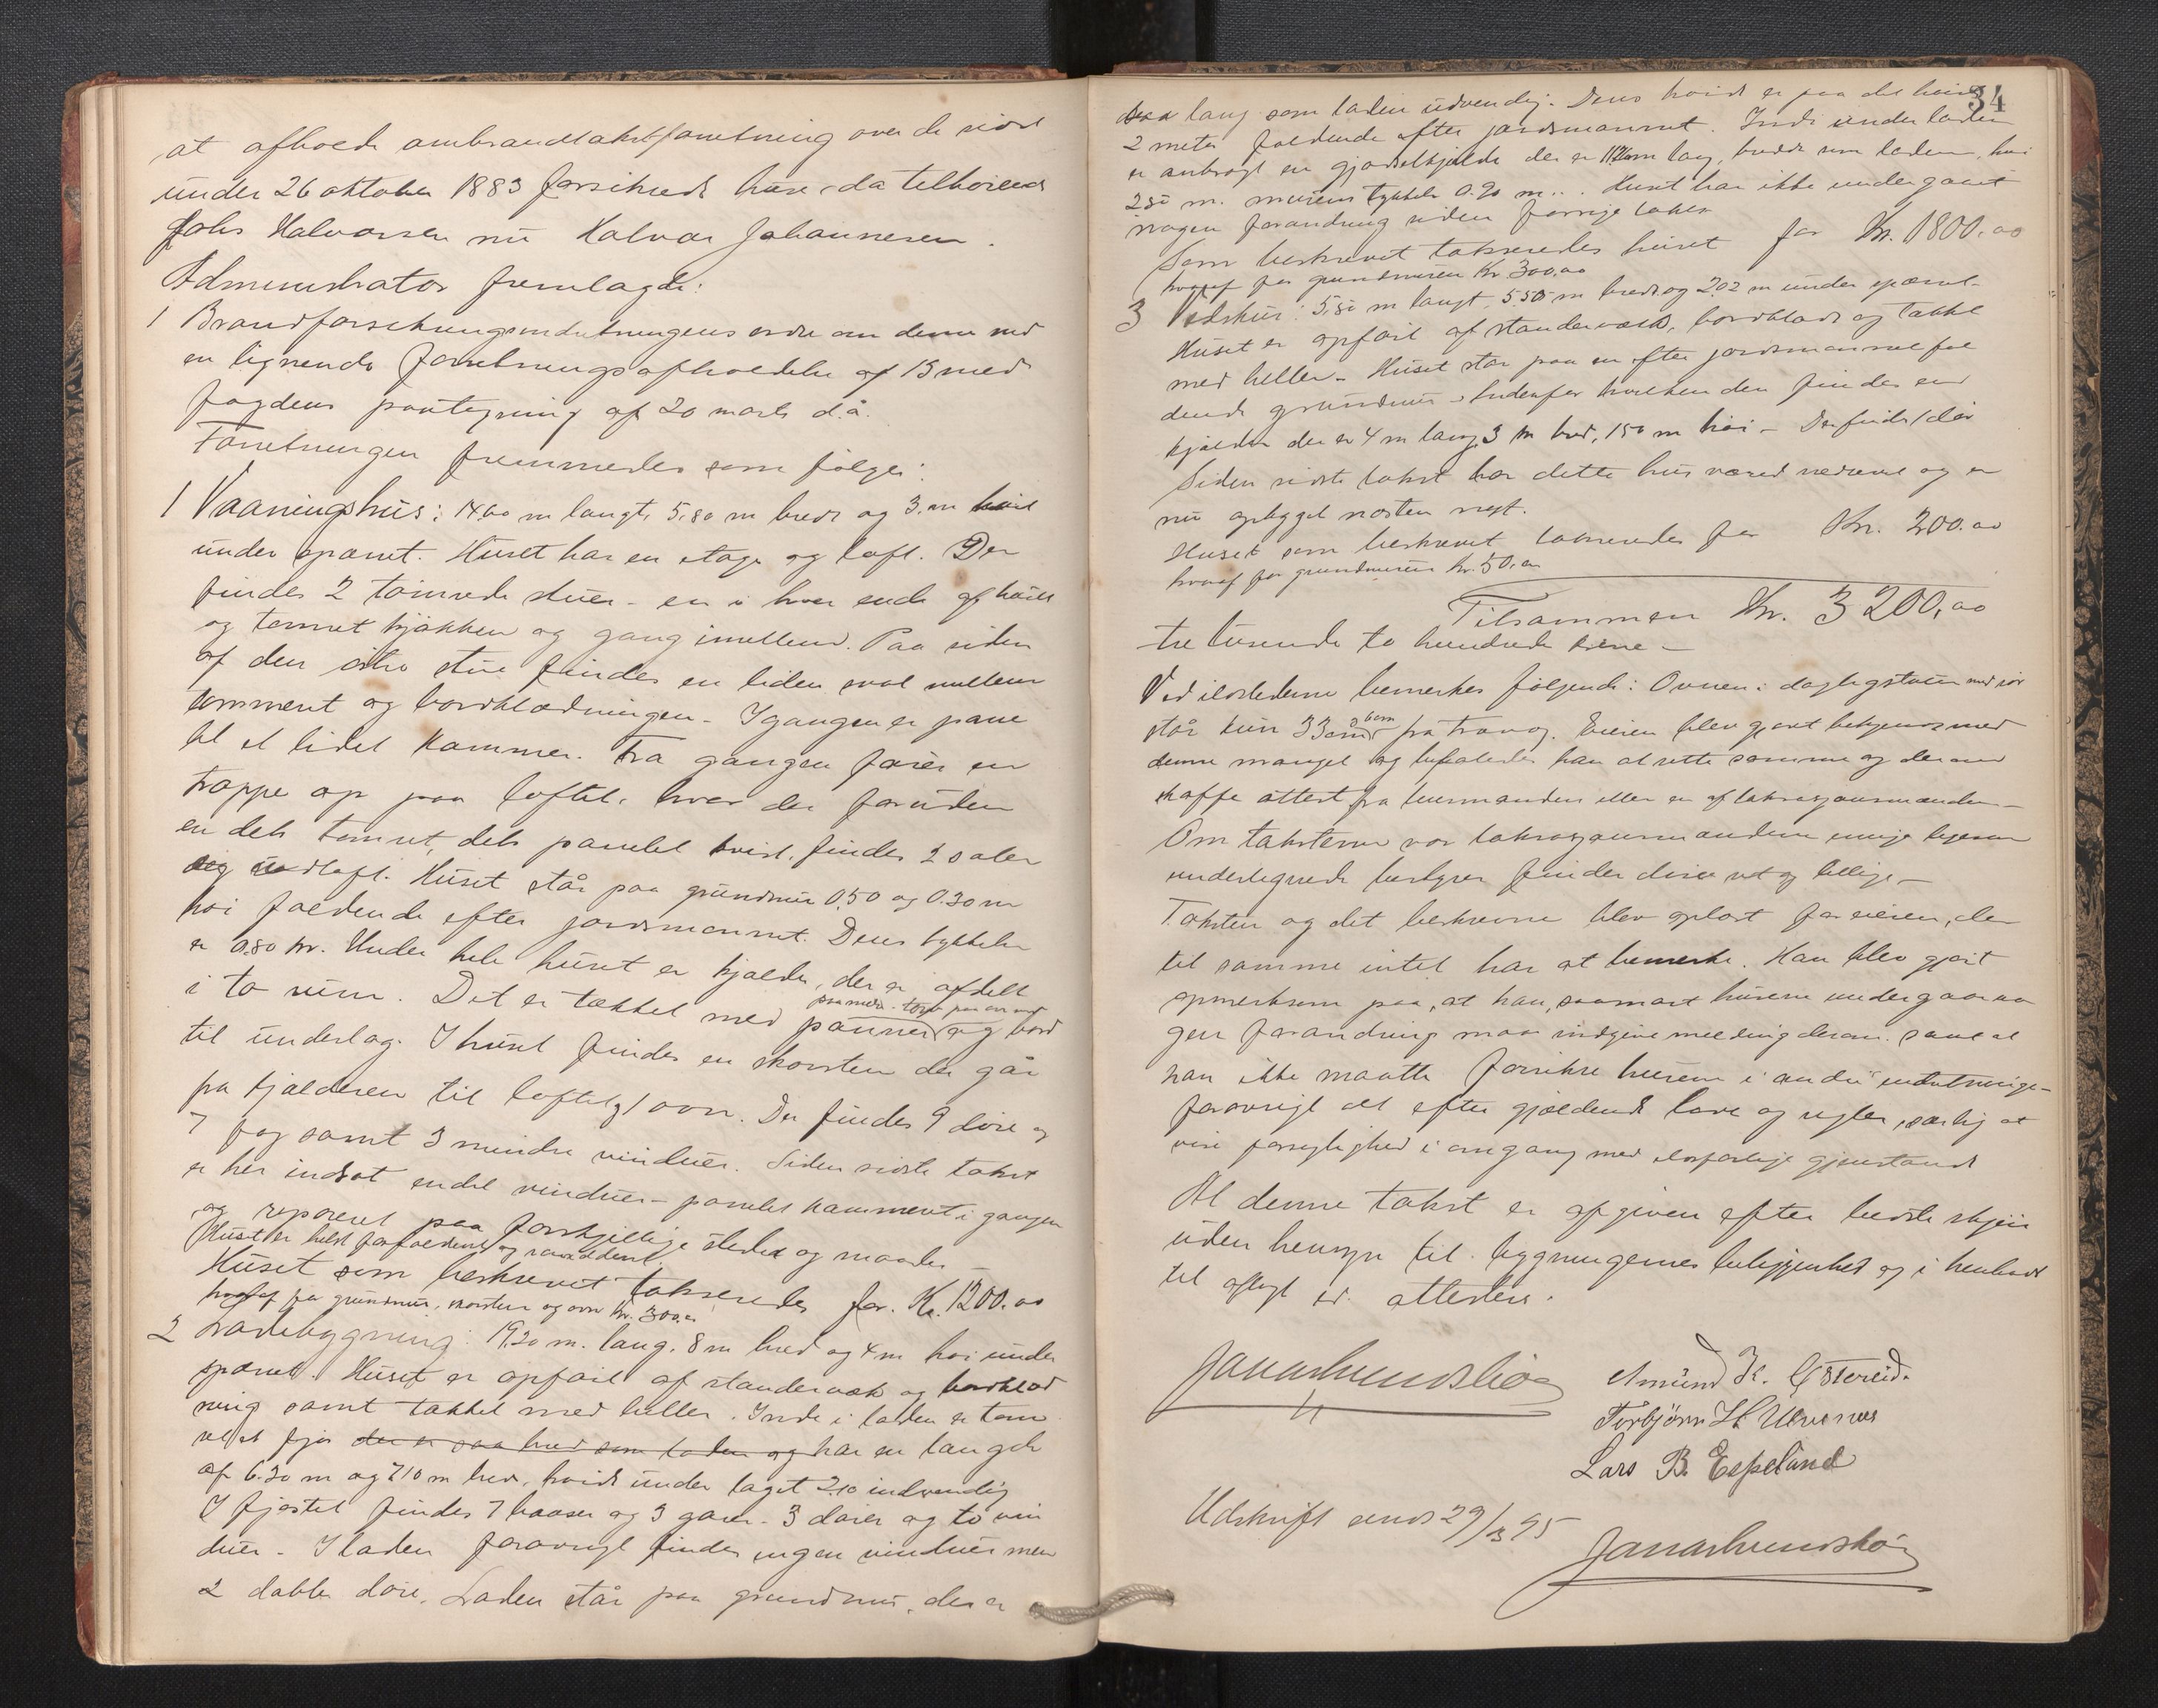 at afholde ombrandtakstforretning over de sidst
under 26 oktober 1883 forsikrede huse, da tilhørende
Johs Halvorsen nu Halvor Johannesen.
Administrator fremlagde:
1 Brandforsikringsindretningens ordre om denne med
en lignende forretnings afholdelse af 13 med
fogdens paategning af 20 marts d.å.
Forretningen fremmedes som følger:
1 Vaaningshus: 14,60 m langt, 5,80 m bredt og 3 m høit
under sparret. Huset har en etage og loft. Der
findes 2 tømrede stuer - en i hver ende af huset
og tømret kjøkken og gang imellem. Paa siden
af den østre stue findes en liden sval mellem
tømmeret og bordklædningen - I gangen er panel
til et lidet kammer. Fra gangen fører en
trappe op paa loftet, hvor der foruden
en dels tømret, dels panelet kvist, findes 2 saler
loft. Huset står paa grundmur 0,50 og 0.30 m
høi faldende efter jordsmonnet. Dens tykkelse
er 0.80 m. Under hele huset er kjelder, der er afdelt
i to rum. Det er tækket med panner og bord
til underlag. I huset findes en skorsten der går
fra kjælderen til loftet, 1 ovn. Der findes 9 døre og
7 fag samt 3 mindre vinduer. Siden sidste takst
er her indsat endel vinduer - panelet kammeret i gangen
og repareret paa forskjellige steder og maader -
Huset er helst forfaldent og
Huset som beskrevet takseredes for. Kr. 1200.00
hvoraf for grundmur, skorsten og ovn kr. 300,00
2 Ladebygning: 19.20 m. lang, 8 m bred og 4 m høi under
sparret. Huset er opført af standerverk og bordklæd
ning samt tækket med heller. Inde i laden er tøm
ret et fjøs der er saa bred som laden og har en længde
af 6.20 m og 7.10 m bred, høide under taget 2.10 indvendig
I fjøstet findes 7 baaser og 3 garer - 3 dører og to vin
duer - I laden forøvrigt findes ingen vinduer men
2 doble døre. Laden står paa grundmur, der er
34
saa lang som laden udvendig. Dens høide er paa det høieste
2 meter faldende efter jordsmonnet. Inde under laden
er anbragt en gjødselkjælder der er lang, bredde som laden, høi
m. murens tykkelse 0.90 m. Huset har ikke undergaaet
nogen forandring siden forrige takst
Som beskrevet takseredes huset for Kr. 1800.00
hvoraf for grundmuren Kr 300.00
3 Vedskur: 5,50 m langt, 5.50 m bredt og 2.02 m under sparret -
Huset er opført af standerverk, bordklædt og tækket
med heller - Huset står paa en efter jordsmonnet fal
dende grundmur - indenfor hvilken der findes en
kjelder der er 4 m lang, 3 m bred, 1.50 m høi - Der findes 1 dør
Siden sidste takst har dette hus været nedrevet og er
nu opbygget næsten nyt.
Huset som beskrevet takseredes for Kr. 200.00
hvoraf for grundmuren kr. 50.00
Tilsammen Kr. 3200,00
tre tusende to hundrede krone -
Ved ildstederne bemerkes følgende: Ovnen i dagligstuen med rør
står kun 33 cm fra trævæg. Eieren blev gjort bekjendt med
denne mangel og befaledes han at rette samme og derom
skaffe attest fra lensmanden eller en af taksasjonsmændene -
Om taksterne var taksasjonsmændene enige ligesom
undertegnede bestyrer finder disse ret og billige -
Taksten og det beskrevne blev oplæst for eieren, der
til samme intet har at bemerke. Han blev gjort
opmerksom paa, at han, saasnart husene undergaar no
gen forandring maa indgive melding derom. samt at
han ikke maatte forsikre husene i andre indretninger -
forøvrigt alt efter gjældende love og regler, særlig at
vise forsiglighed i omgang med ildsfarlige gjenstande
At denne takst er afgiven efter bedste skjøn
uden hensyn til bygningernes beliggenhed og i henhold
til aflagt ed attesteres.
Amund K. Østereid.
Torbjørn H. Ulvenes
Lars B. Espeland
Udskrift sendt 29/3 95